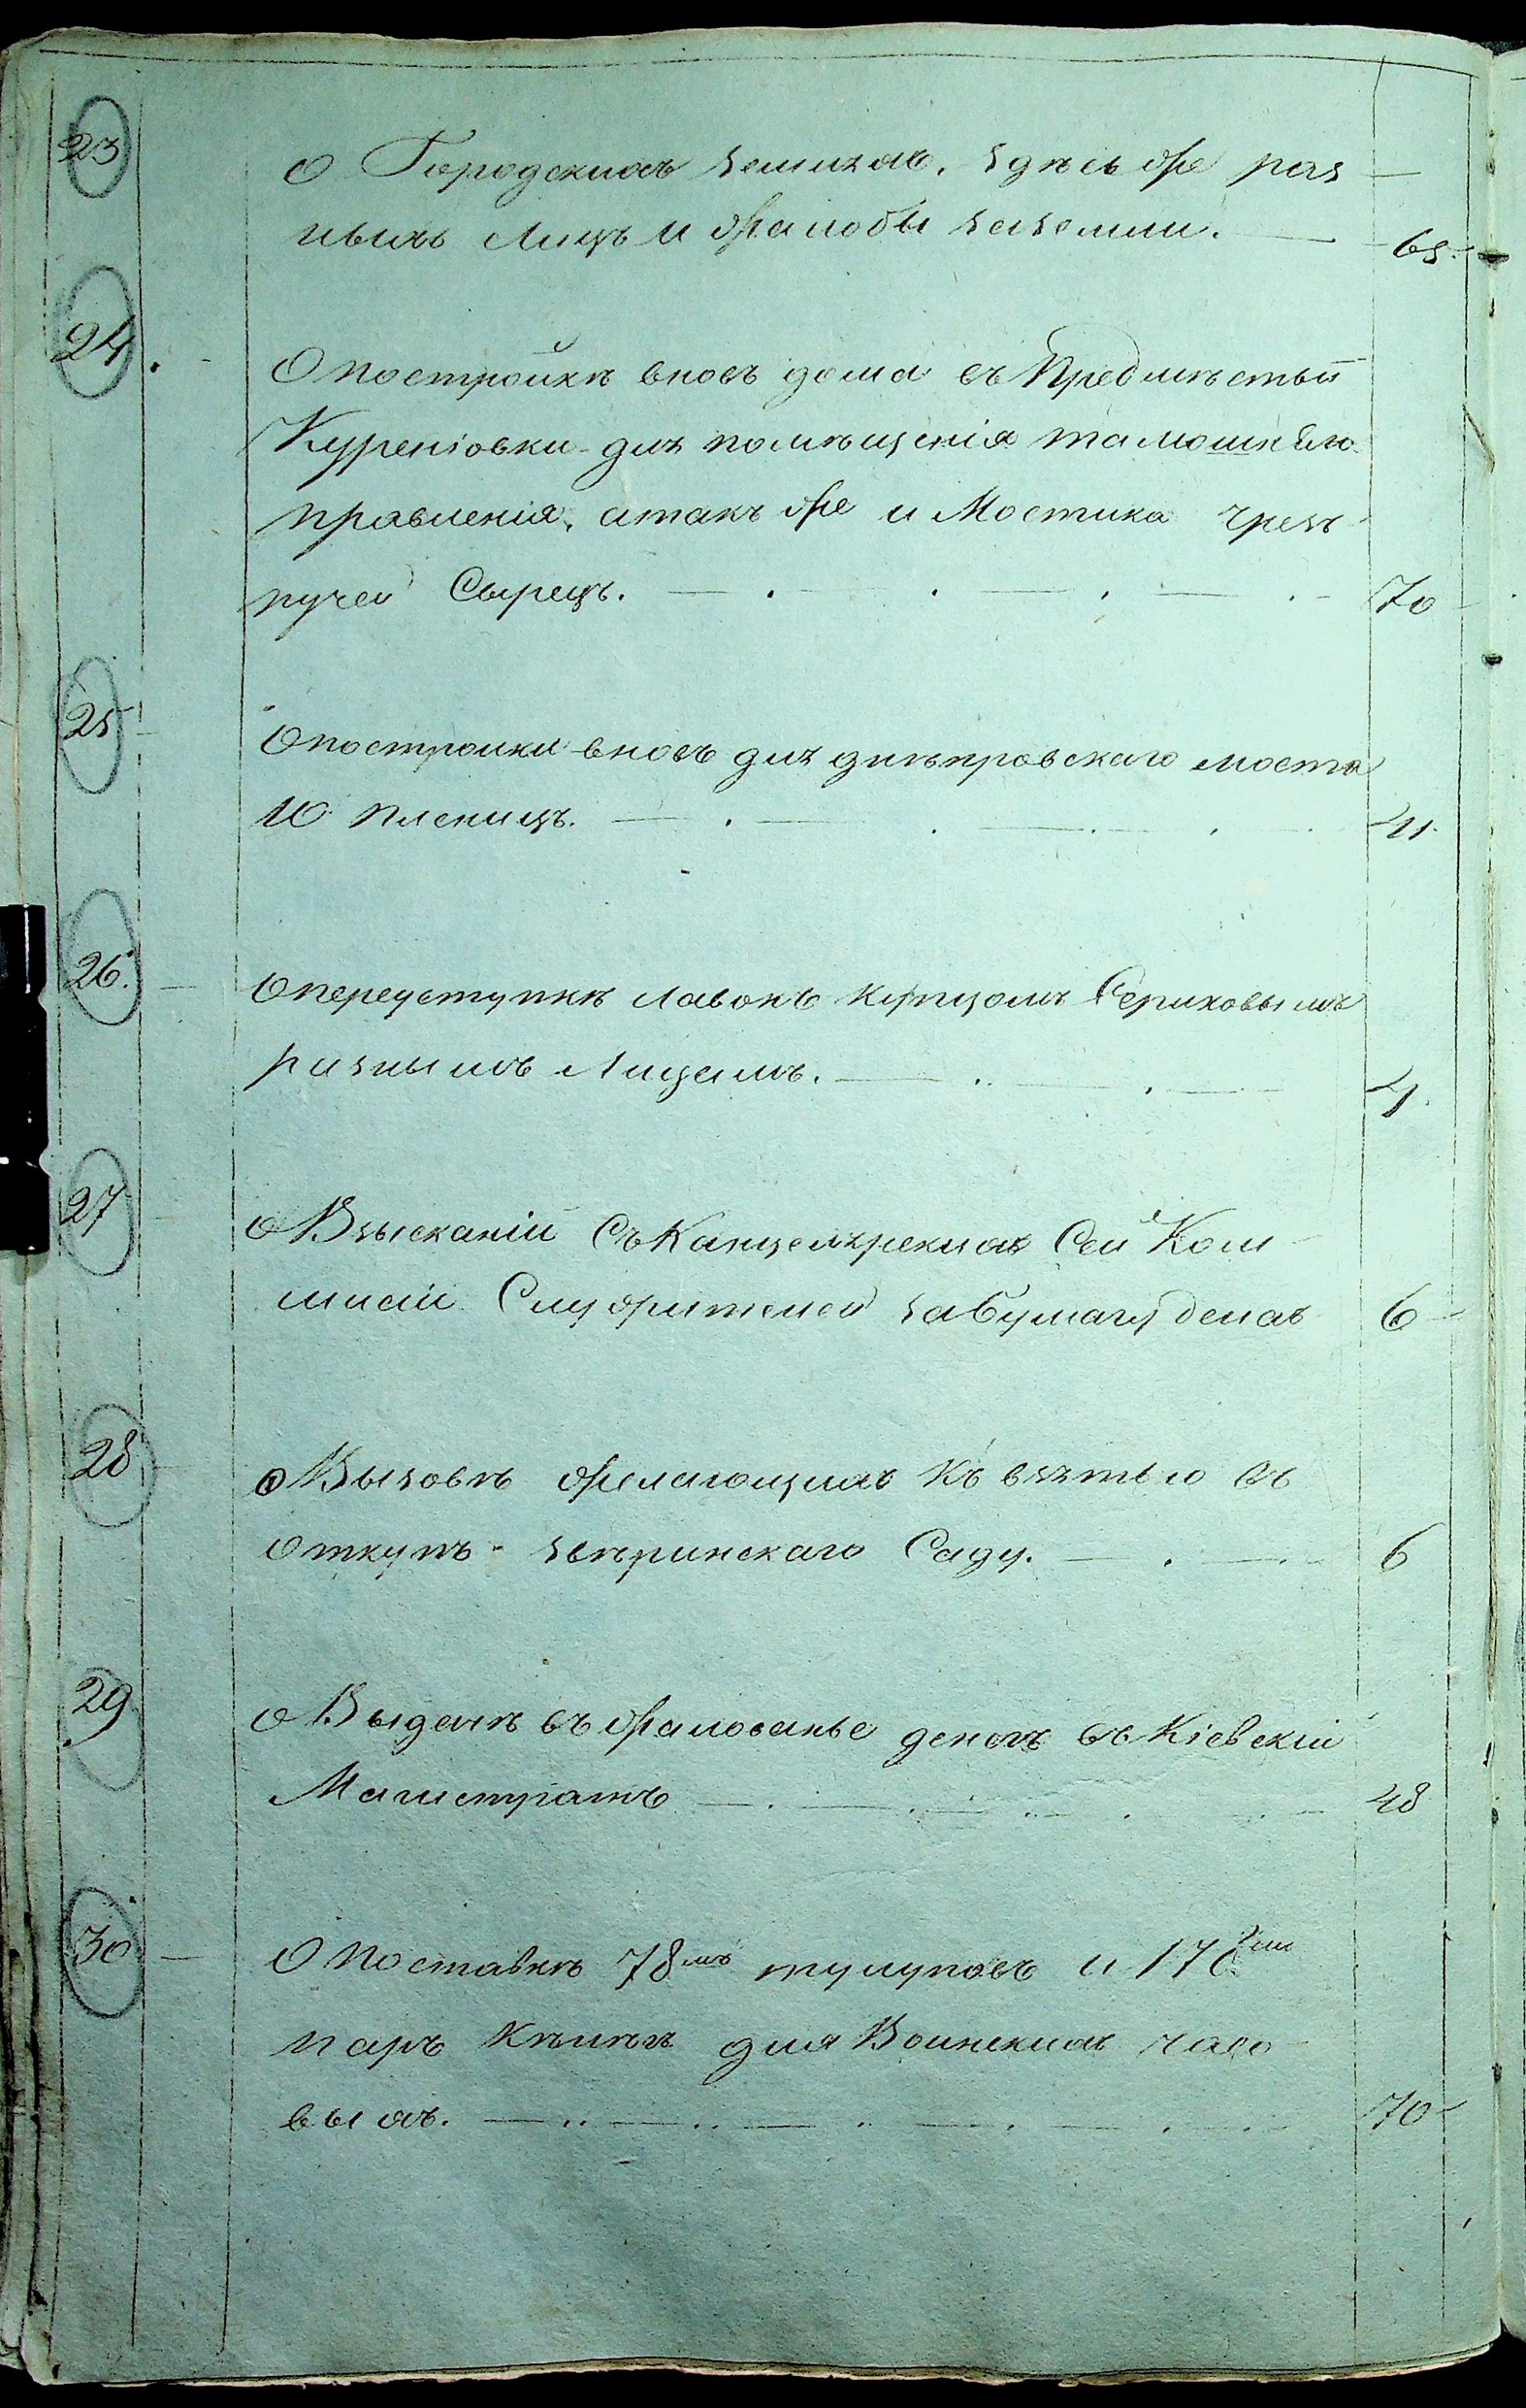 23 О Городскихъ земляхъ, здѣсь же раз
ныхъ лицъ и жалобы заземли. — 65.
24. О постройкѣ вновь дома въ Предмѣстьи
Куреніовки для помѣщенія тамошнѣго
правленія, атакъ же и Мостика чрезъ
ручей Сырецъ. — 70
25 О постройки вновь для днѣпровскаго моста
10 пленицъ. — 41.
26. О переуступкѣ лавокъ купцомъ Сериковымъ
разнымъ Лицамъ. — 4.
27 О Взысканіи Съ Канцелярскихъ Сей Ком
мисіи Служителей за бумагу денегъ 6
28 О Вызовѣ желающихъ къ взятью въ
откупъ звѣринскаго Саду. — 6
29 О Выдачѣ въ жалованье денегъ въ Кіевскій
Магистратъ — 48
30 О поставкѣ 78мъ тулуповъ и 178ми
паръ кѣнегъ для Воинскихъ часо
выхъ. — 70